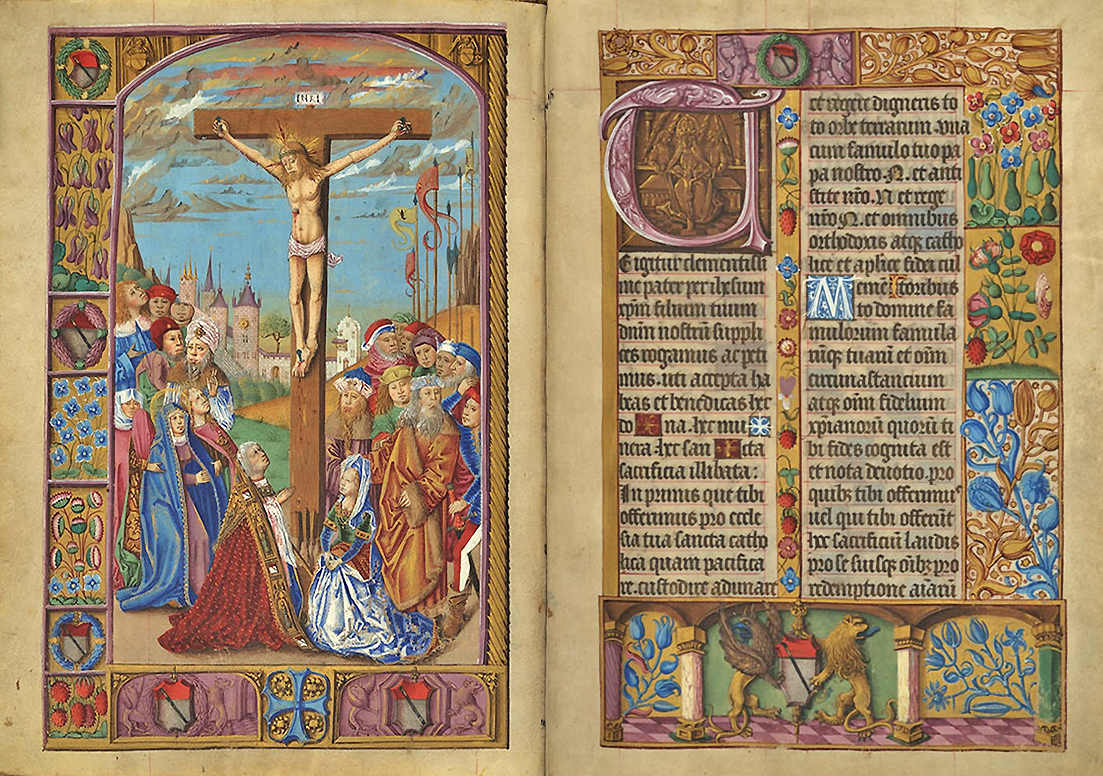 INRI
T
E igitur clementissi
me pater per ihesum
xp̄m filium tuum
dn̄m nostrum suppli
ces rogamus ac peti
mus. uti accepta ha
beas et benedicas hec
do ✠ na. hec mu ✠
nera. hec san ✠ cta
sacrificia illibata:
In primis que tibi
offerimus pro eccle
sia tua sancta catho
lica quam pacifica
re. custodire adunare
et regere digneris to
to orbe terrarum .vna
cum famulo tuo pa
pa nostro .N. et anti
stite nr̄o. N. et rege
nr̄o .N. et omnibus
orthodoxis atqꝫ catho
lice et apl̄ice fidei cul
Memē toribus
to domine fa
mulorum famula
rūmqꝫ tuarū et oīm
circumastancium
atqꝫ oīm fidelium
xp̄ianorū quorū ti
bi fides cognita est
et nota deuotio. pro
quibꝫ tibi offerimus
uel qui tibi offerūt
hec sacrificiū laudis
pro se suisqꝫ oībꝫ pro
redemptione aīarū